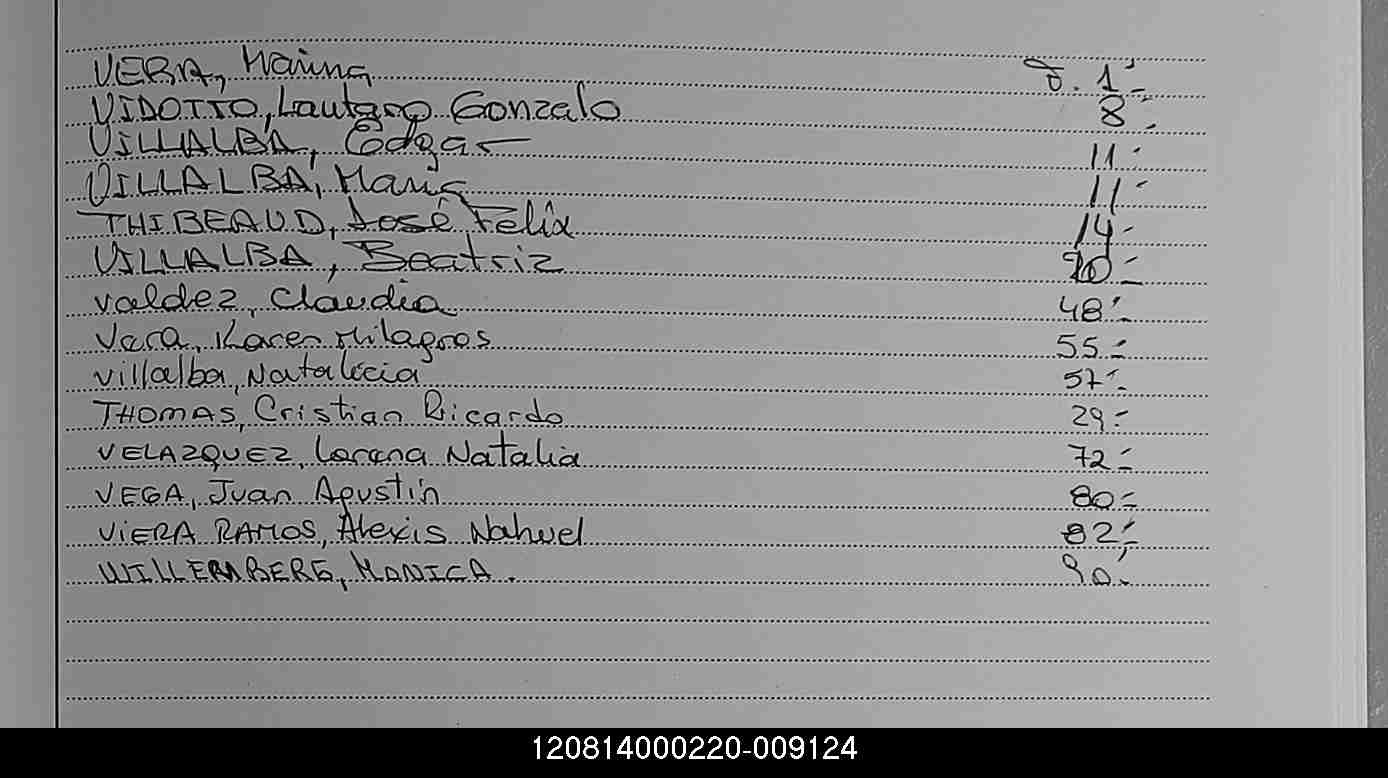 VERA, Marina F. 1.-
VIDOTTO, Lautaro Gonzalo 8.-
VILLALBA, Edgar 11.-
VILLALBA, Maria 11.-
THIBEAUD, José Felix 14.-
VILLALBA, Beatriz
Valdez, Claudia 48.-
Vera, Karen Milagros 55.-
Villalba, Natalicia 57.-
THOMAS, Cristian Ricardo 29.-
VELAZQUEZ, Lorena Natalia 72.-
VEGA, Juan Agustín 80.-
VIERA RAMOS, Alexis Nahuel 82.-
WILLEMBERG, MONICA. 90.-
120814000220-009124